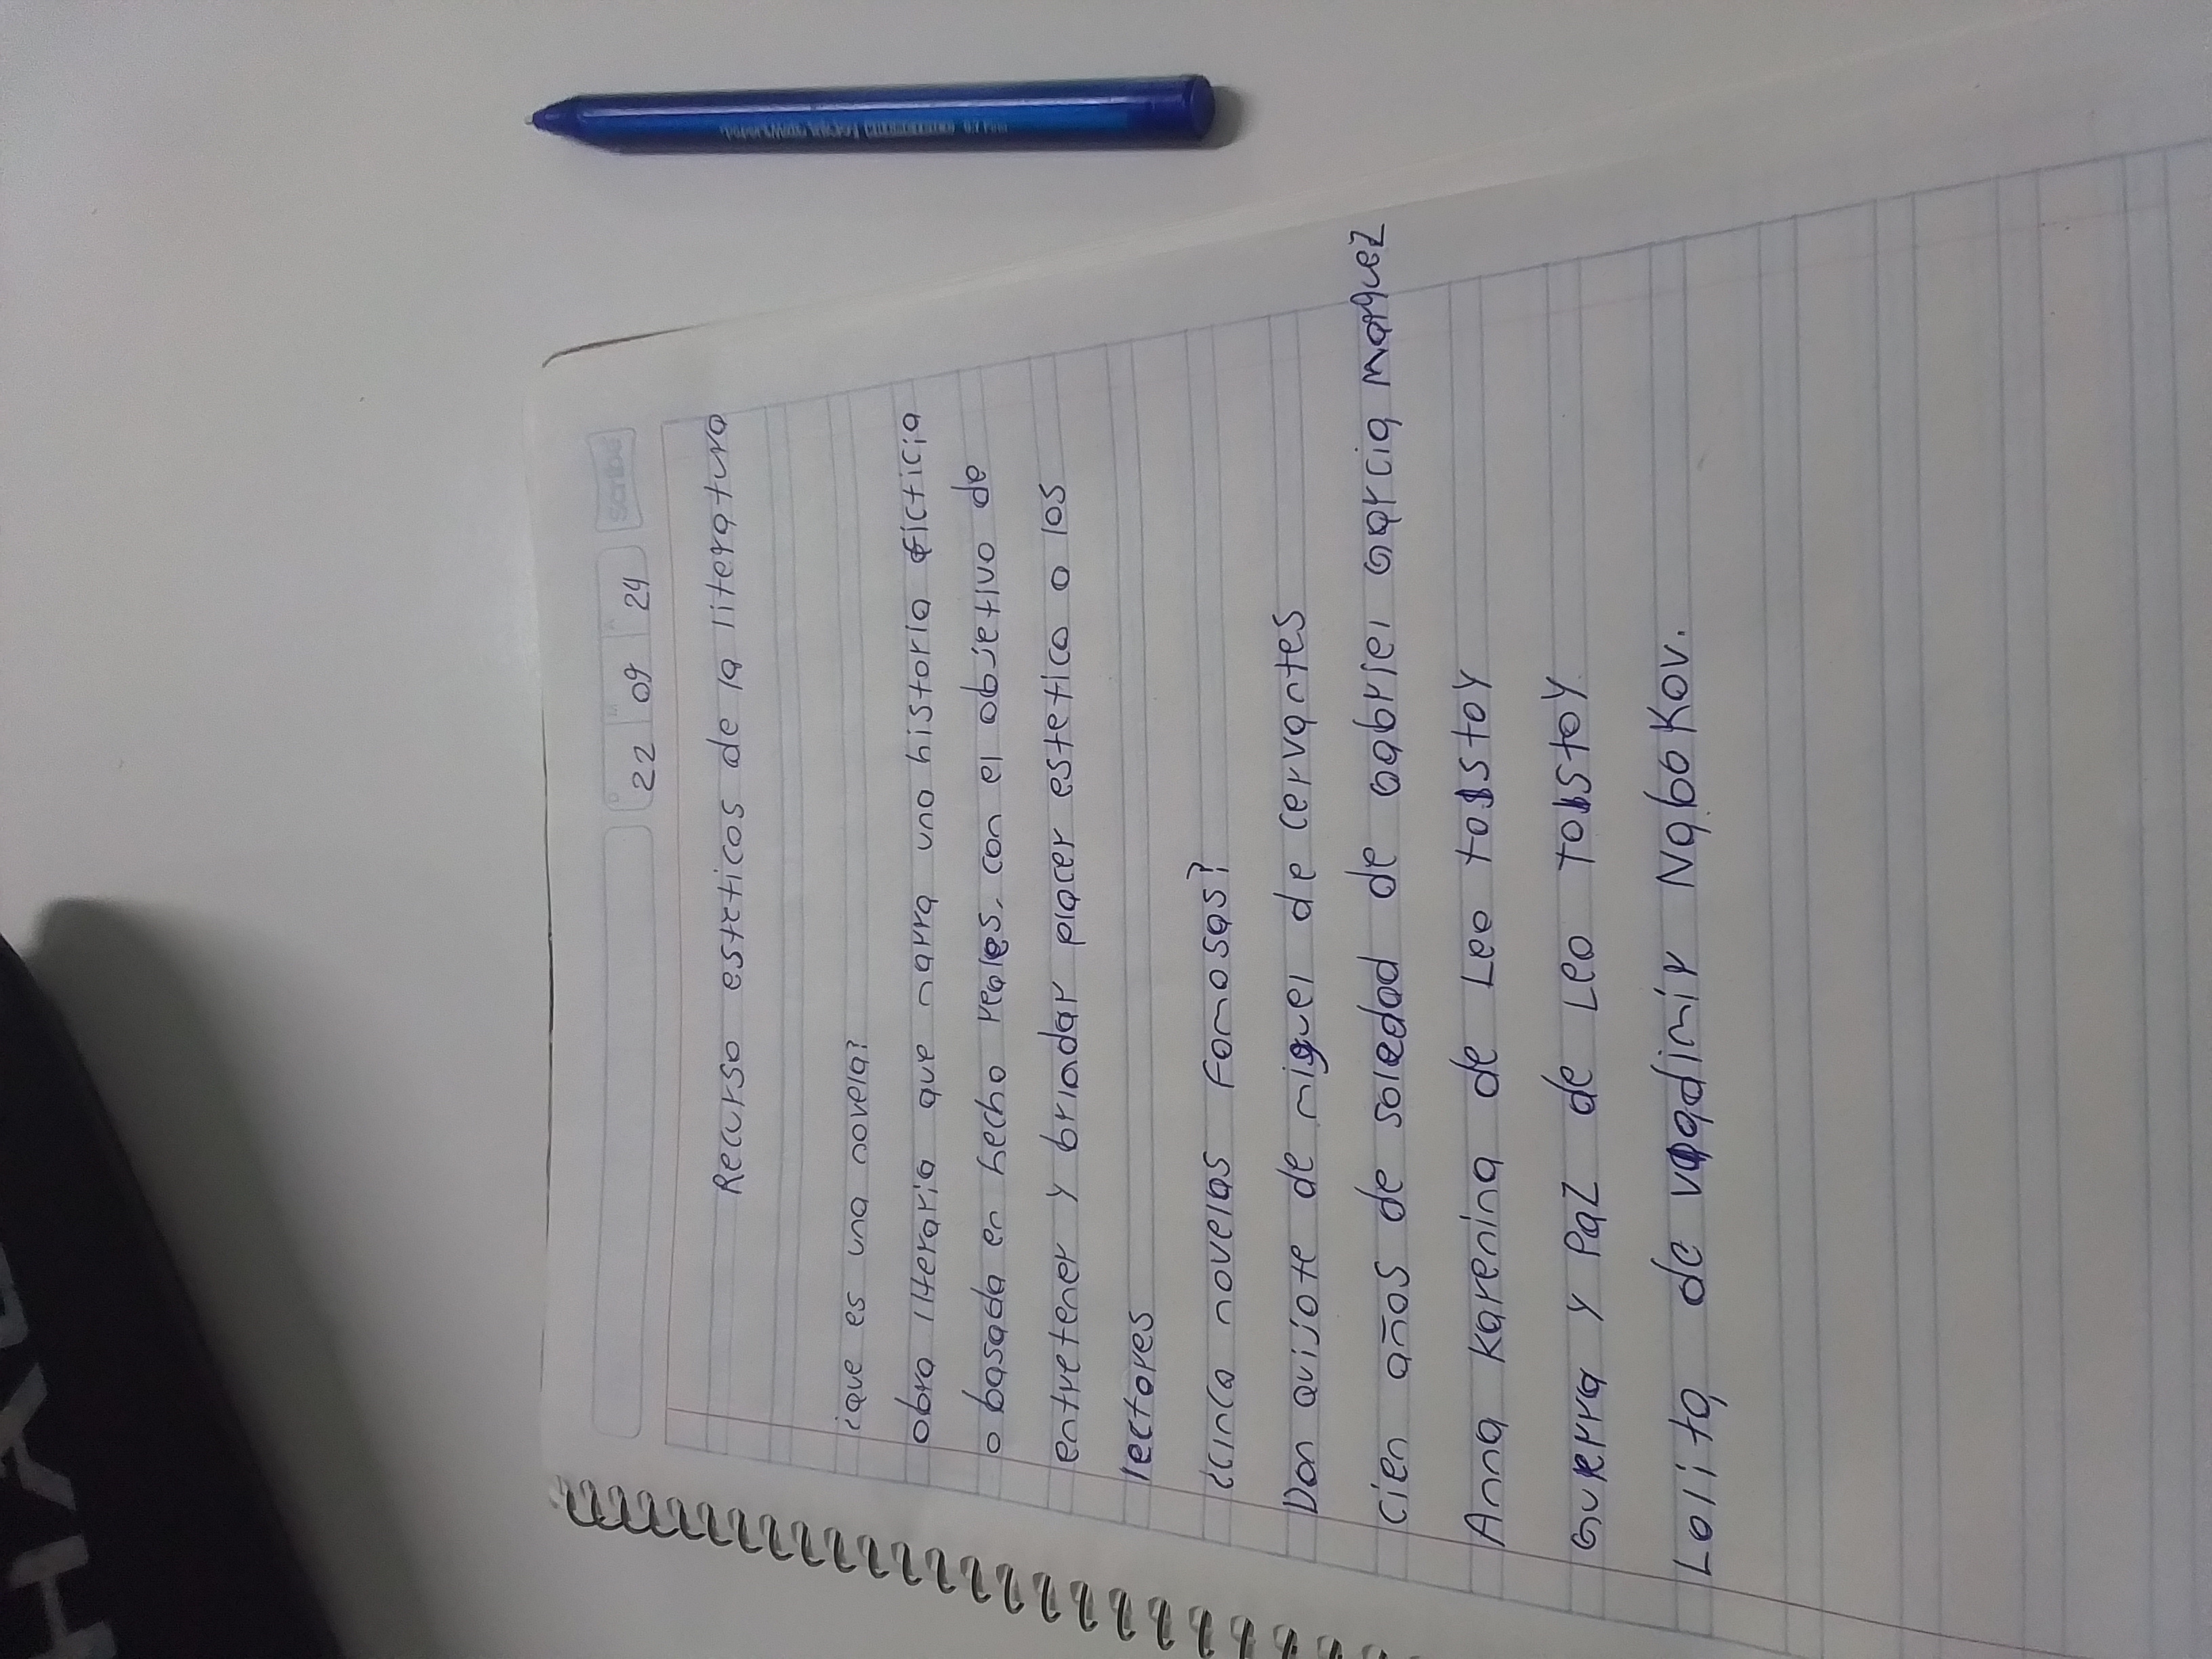 22 09 24
Scribe
Recurso estéticos de la literatura
¿que es una novela?
obra literaria que narra una historia ficticia
o basada en hecho reales, con el objetivo de
entretener y brindar placer estetico a los
lectores
¿cinco novelas Famosas?
Don quijote de miguel de cervantes
Cien años de soledad de Gabriel Garcia marquez
Anna Karenina de Leo tolstoy
Guerra y Paz de Leo Tolstoy
Lolita de Vladimir Nabokov.